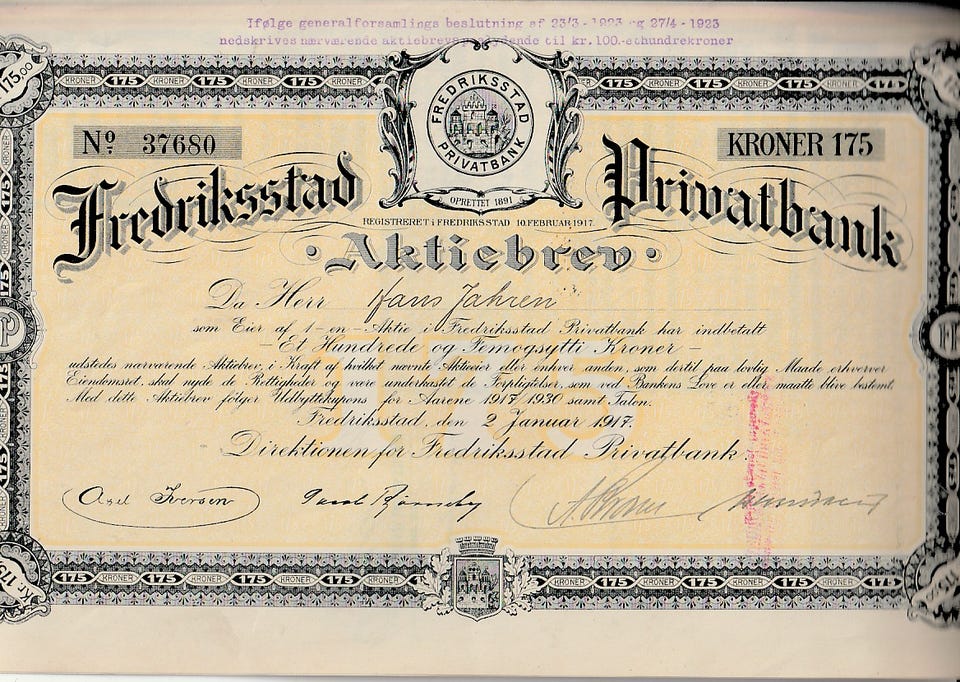 Ifølge generalforsamlings beslutning af 23/3 - 1923 og 27/4 - 1923
nedskrives nærværende aktiebrevs pålydende til kr. 100.-ethundrekroner
175 KRONER 175 KRONER 175 KRONER 175 KRONER 175 KRONER 175 KRONER 175 KRONER 175
175.00
FREDRIKSSTAD PRIVATBANK
OPRETTET 1891
Nº 37680
KRONER 175
Fredriksstad Privatbank
REGISTRERET i FREDRIKSSTAD 10. FEBRUAR 1917.
· Aktiebrev ·
Da Herr Hans Jahren
som Eier af 1-en-Aktie i Fredriksstad Privatbank har indbetalt
- Et Hundrede og Femogsytti Kroner -
175
udstedes nærværende Aktiebrev, i Kraft af hvilket nævnte Aktieeier eller enhver anden, som dertil paa lovlig Maade erhverver
Eiendomsret, skal nyde de Rettigheder og være underkastet de Forpligtelser, som ved Bankens Love er eller maatte blive bestemt.
Med dette Aktiebrev følger Udbyttekupons for Aarene 1917/1930 samt Talon.
Fredriksstad, den 2 Januar 1917.
Direktionen for Fredriksstad Privatbank.
Axel Iversen
175 KRONER 175 KRONER 175 KRONER 175 KRONER 175 KRONER 175 KRONER 175 KRONER 175